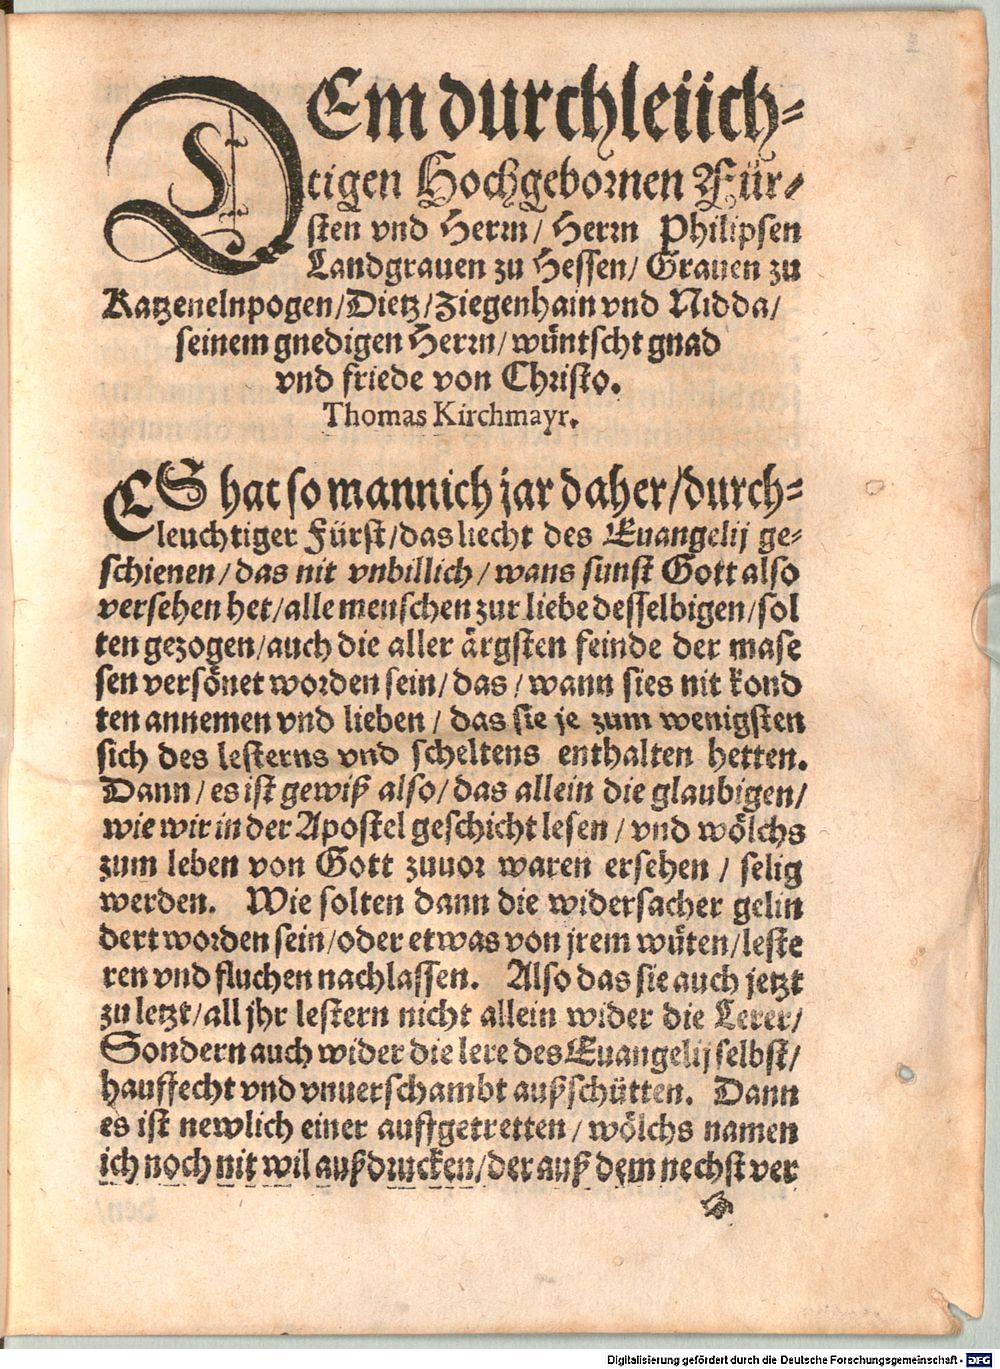 DEm durchleiich-
tigen Hochgebornen Für-
sten vnd Herrn/ Herrn Philipsen
Landgrauen zu Hessen/ Grauen zu
Katzenelnpogen/Dietz/Ziegenhain vnd Nidda/
seinem gnedigen Herrn/ wüntscht gnad
vnd friede von Christo.
Thomas Kirchmayr.
ES hat so mannich jar daher/durch-
leuchtiger Fürst/das liecht des Euangelij ge-
schienen/das nit vnbillich/ wans sunst Gott also
versehen het/alle menschen zur liebe desselbigen/sol
ten gezogen/auch die aller ärgsten feinde der masse
sen versönet worden sein/das/wann sies nit kond
ten annemen vnd lieben/ das sie je zum wenigsten
sich des lesterns vnd scheltens enthalten hetten.
Dann/ es ist gewiß also/das allein die glaubigen/
wie wir in der Apostel geschicht lesen/ vnd wölchs
zum leben von Gott zuuor waren ersehen / selig
werden. Wie solten dann die widersacher gelin
dert worden sein/oder etwas von jrem wüten/leste
ren vnd fluchen nachlassen. Also das sie auch jetzt
zu letzt/all jhr lestern nicht allein wider die Lerer/
Sondern auch wider die lere des Euangelij selbst/
hauffecht vnd vnuerschambt außschütten. Dann
es ist newlich einer auffgetretten/ wölchs namen
ich noch nit wil außdrucken/der auß dem nechst ver
Digitalisierung gefördert durch die Deutsche Forschungsgemeinschaft - DFG